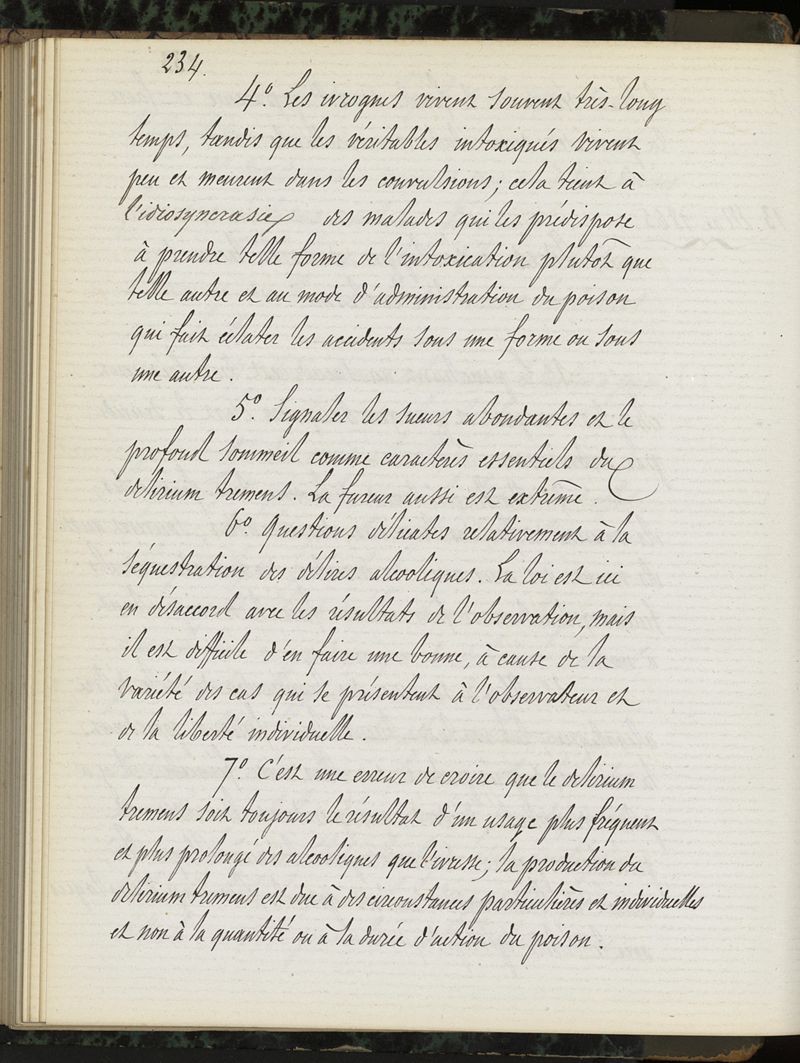 234.
4º. Les ivrognes vivent souvent très-long
temps, tandis que les véritables intoxiqués vivent
peu et meurent dans les convulsions; cela tient à
l'idiosyncrasie des malades qui les prédispose
à prendre telle forme de l'intoxication plutôt que
telle autre et au mode d'administration du poison
qui fait éclater les accidents sous une forme ou sous
une autre.
5º. Signaler les sueurs abondantes et le
profond sommeil comme caractères essentiels du
delirium tremens. La fureur aussi est extrême.
6º. Questions délicates relativement à la
séquestration des délires alcooliques. La loi est ici
en désaccord avec les résultats de l'observation, mais
il est difficile d'en faire une bonne, à cause de la
variété des cas qui se présentent à l'observateur et
de la liberté individuelle.
7º. C'est une erreur de croire que le delirium
tremens soit toujours le résultat d'un usage plus fréquent
et plus prolongé des alcooliques que l'ivresse; la production du
delirium tremens est due à des circonstances particulières et individuelles
et non à la quantité ou à la durée d'action du poison.